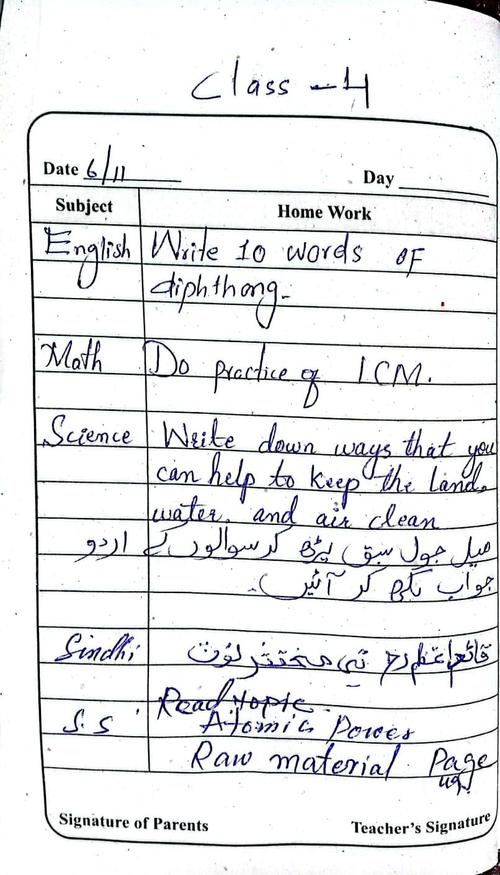 Class - 4
Date 6/11 Day
Subject Home Work
English Write 10 words of
diphthong-
Math Do practice of LCM.
Science Write down ways that you
can help to keep the land,
water, and air clean
اردو میل جول سبق پڑھ کر سوالوں کے
جواب لکھ کر آئیں۔
Sindhi قائداعظم رح تي مختصر نوٽ
Read topic
S.S Atomic Power
Raw material Page
Signature of Parents Teacher's Signature